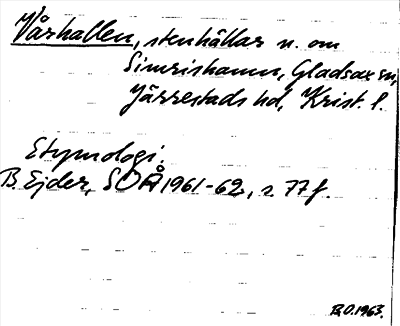 Vårhallen, stenhällar n. om
Simrishamn, Gladsax sn,
Järrestads hd, Krist. l.
Etymologi.
B. Ejder, SOÅ 1961-62, s. 77 f.
B.O. 1963.